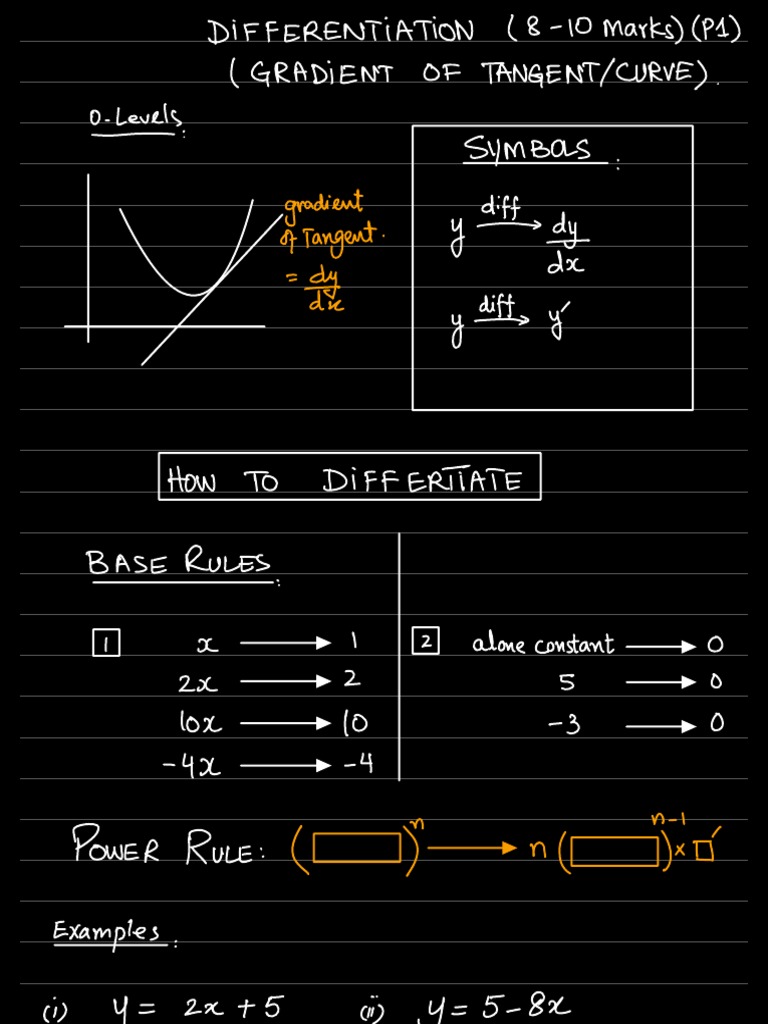 DIFFERENTIATION (8-10 marks)(P1)
(GRADIENT OF TANGENT/CURVE).
O-Levels:
gradient
of Tangent.
= dy/dx
SYMBOLS:
y diff → dy/dx
y diff → y′
HOW TO DIFFERTIATE
BASE RULES:
1 x → 1
2x → 2
10x → 10
-4x → -4
2 alone constant → 0
5 → 0
-3 → 0
POWER RULE: (▭)ⁿ → n(▭)ⁿ⁻¹ × □′
Examples:
(i) y = 2x + 5 (ii) y = 5-8x